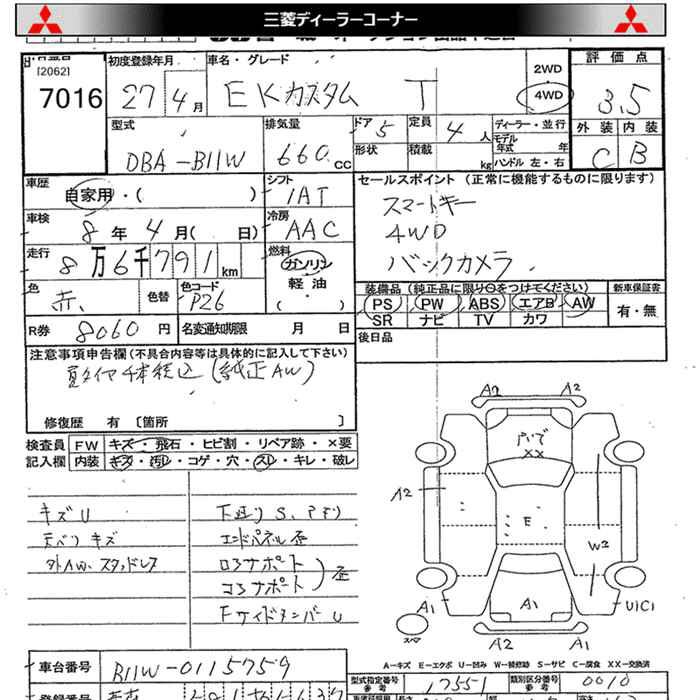 三菱ディーラーコーナー
[2062]
7016
初度登録年月
27年4月
車名・グレード
EKカスタム T
2WD
4WD
評価点
3.5
外装 内装
C B
型式
DBA-B11W
排気量
660 CC
ドア 5
定員 4人
形状
積載 kg
ディーラー・並行
モデル年式 年
ハンドル 左・右
車歴
自家用・( )
シフト
IAT
セールスポイント (正常に機能するものに限ります)
スマートキー
4WD
バックカメラ
車検
8年 4月( 日)
冷房
AAC
走行
8万6千791km
燃料
ガソリン
軽油
( )
色
赤
色替
色コード
P26
装備品(純正品に限り○をつけてください)
PS PW ABS エアB AW
SR ナビ TV カワ
新車保証書
有・無
R券 8060円
名変通知期限 月 日
後日品
注意事項申告欄(不具合内容等は具体的に記入して下さい)
夏タイヤ4本積込(純正AW)
修復歴 有 〔箇所 〕
検査員記入欄
FW キズ・飛石・ヒビ割・リペア跡・×要
内装 キズ・汚レ・コゲ・穴・スレ・キレ・破レ
キズU
天バリキズ
外AW、スタッドレス
下廻りS、サビ
エンドパネル歪
ロアサポート
コアサポート
歪
FサイドメンバーU
A2 A2
XX
A2
E
W2
A1
A1
U1C1
スペア
A2 A1
A-キズ E-エクボ U-凹み W-補修跡 S-サビ C-腐食 XX-交換済
車台番号
B11W-0115759
型式指定番号
参考
17551
類別区分番号
参考
0010
登録番号